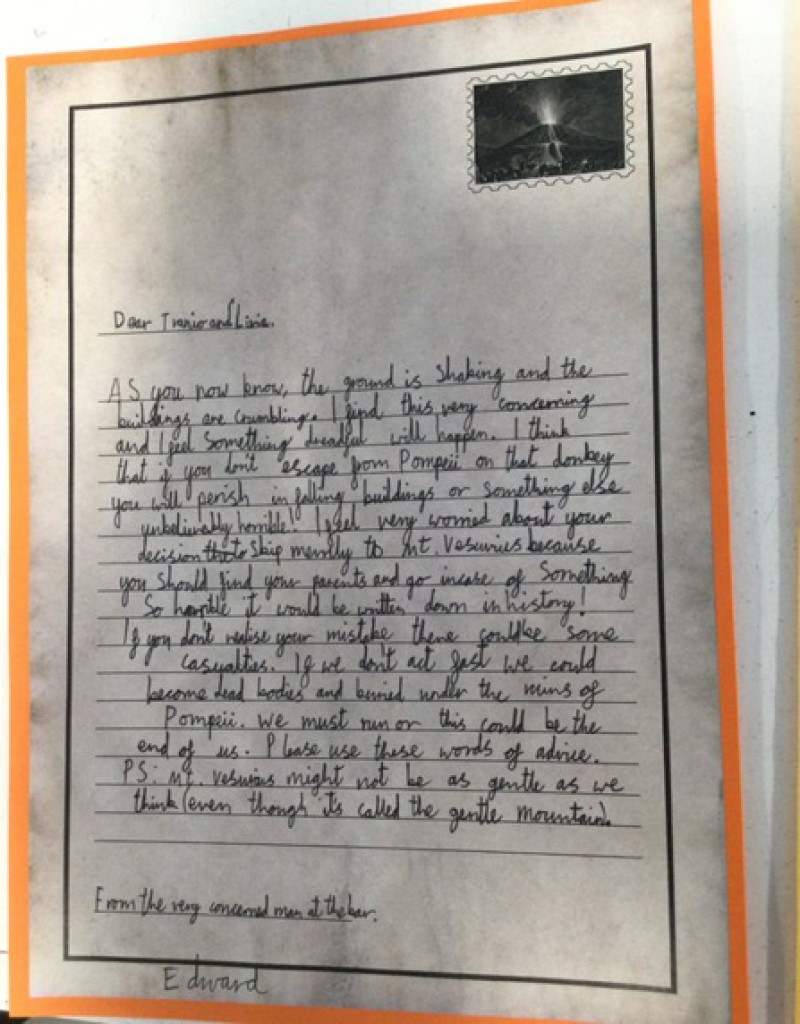 Dear Tranio and Livia.
AS you now know, the ground is shaking and the
buildings are crumbling. I find this very concerning
and I feel something dreadful will happen. I think
that if you don't escape from Pompeii on that donkey
you will perish in falling buildings or something else
unbelievably horrible! I feel very worried about your
decision to skip merrily to Mt. Vesuvies because
you should find your parents and go incase of Something
So horrible it would be written down in history!
If you don't realise your mistake there could be some
casualties. If we don't act fast we could
become dead bodies and buried under the ruins of
Pompeii. We must run or this could be the
end of us. Please use these words of advice.
PS: Mt. Vesuvius might not be as gentle as we
think (even though its called the gentle mountain).
From the very concerned man at the bar.
Edward